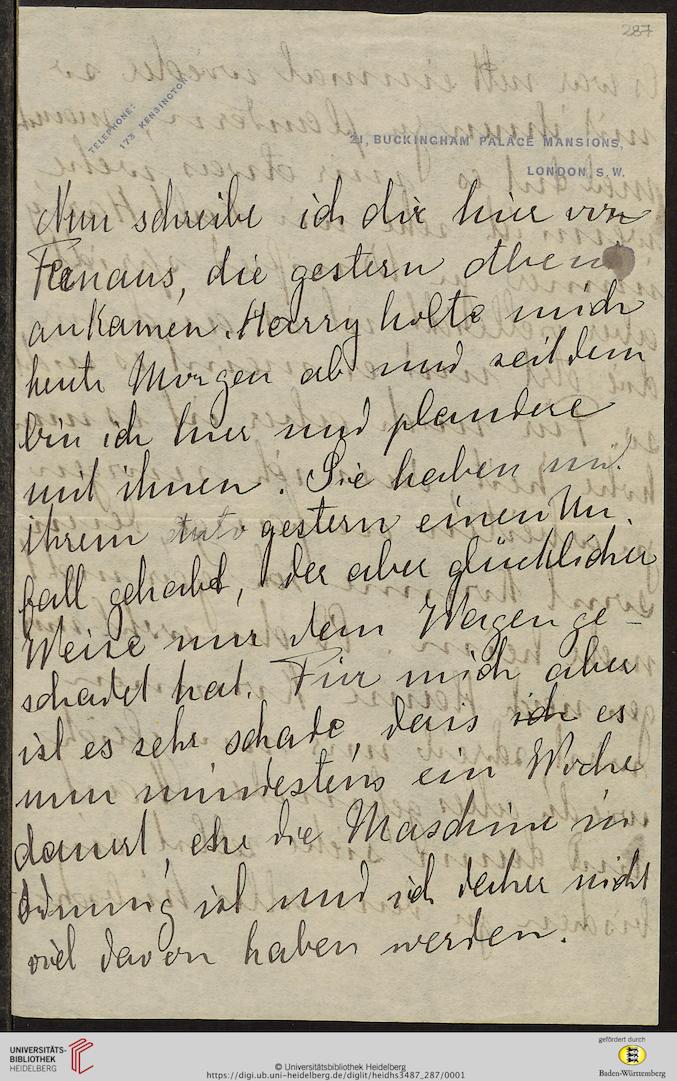 287
TELEPHONE:
173 KENSINGTON
21, BUCKINGHAM PALACE MANSIONS,
LONDON, S. W.
Nun schreibe ich dir hier von
die gestern Abend
ankamen. Harry holte mich
heute Morgen ab und seitdem
bin ich hier und plaudere
mit ihnen. Sie haben mit
ihrem Auto gestern einen Un-
fall gehabt, der aber glücklicher
Weise nur dem Wagen ge-
schadet hat. Für mich aber
ist es sehr schade, dass ich es
nun mindestens ein Woche
dauert, ehe die Maschine in
Ordnung ist und ich daher nicht
viel davon haben werden.
UNIVERSITÄTS-
BIBLIOTHEK
HEIDELBERG
© Universitätsbibliothek Heidelberg
https://digi.ub.uni-heidelberg.de/diglit/heidhs3487_287/0001
gefördert durch
Baden-Württemberg